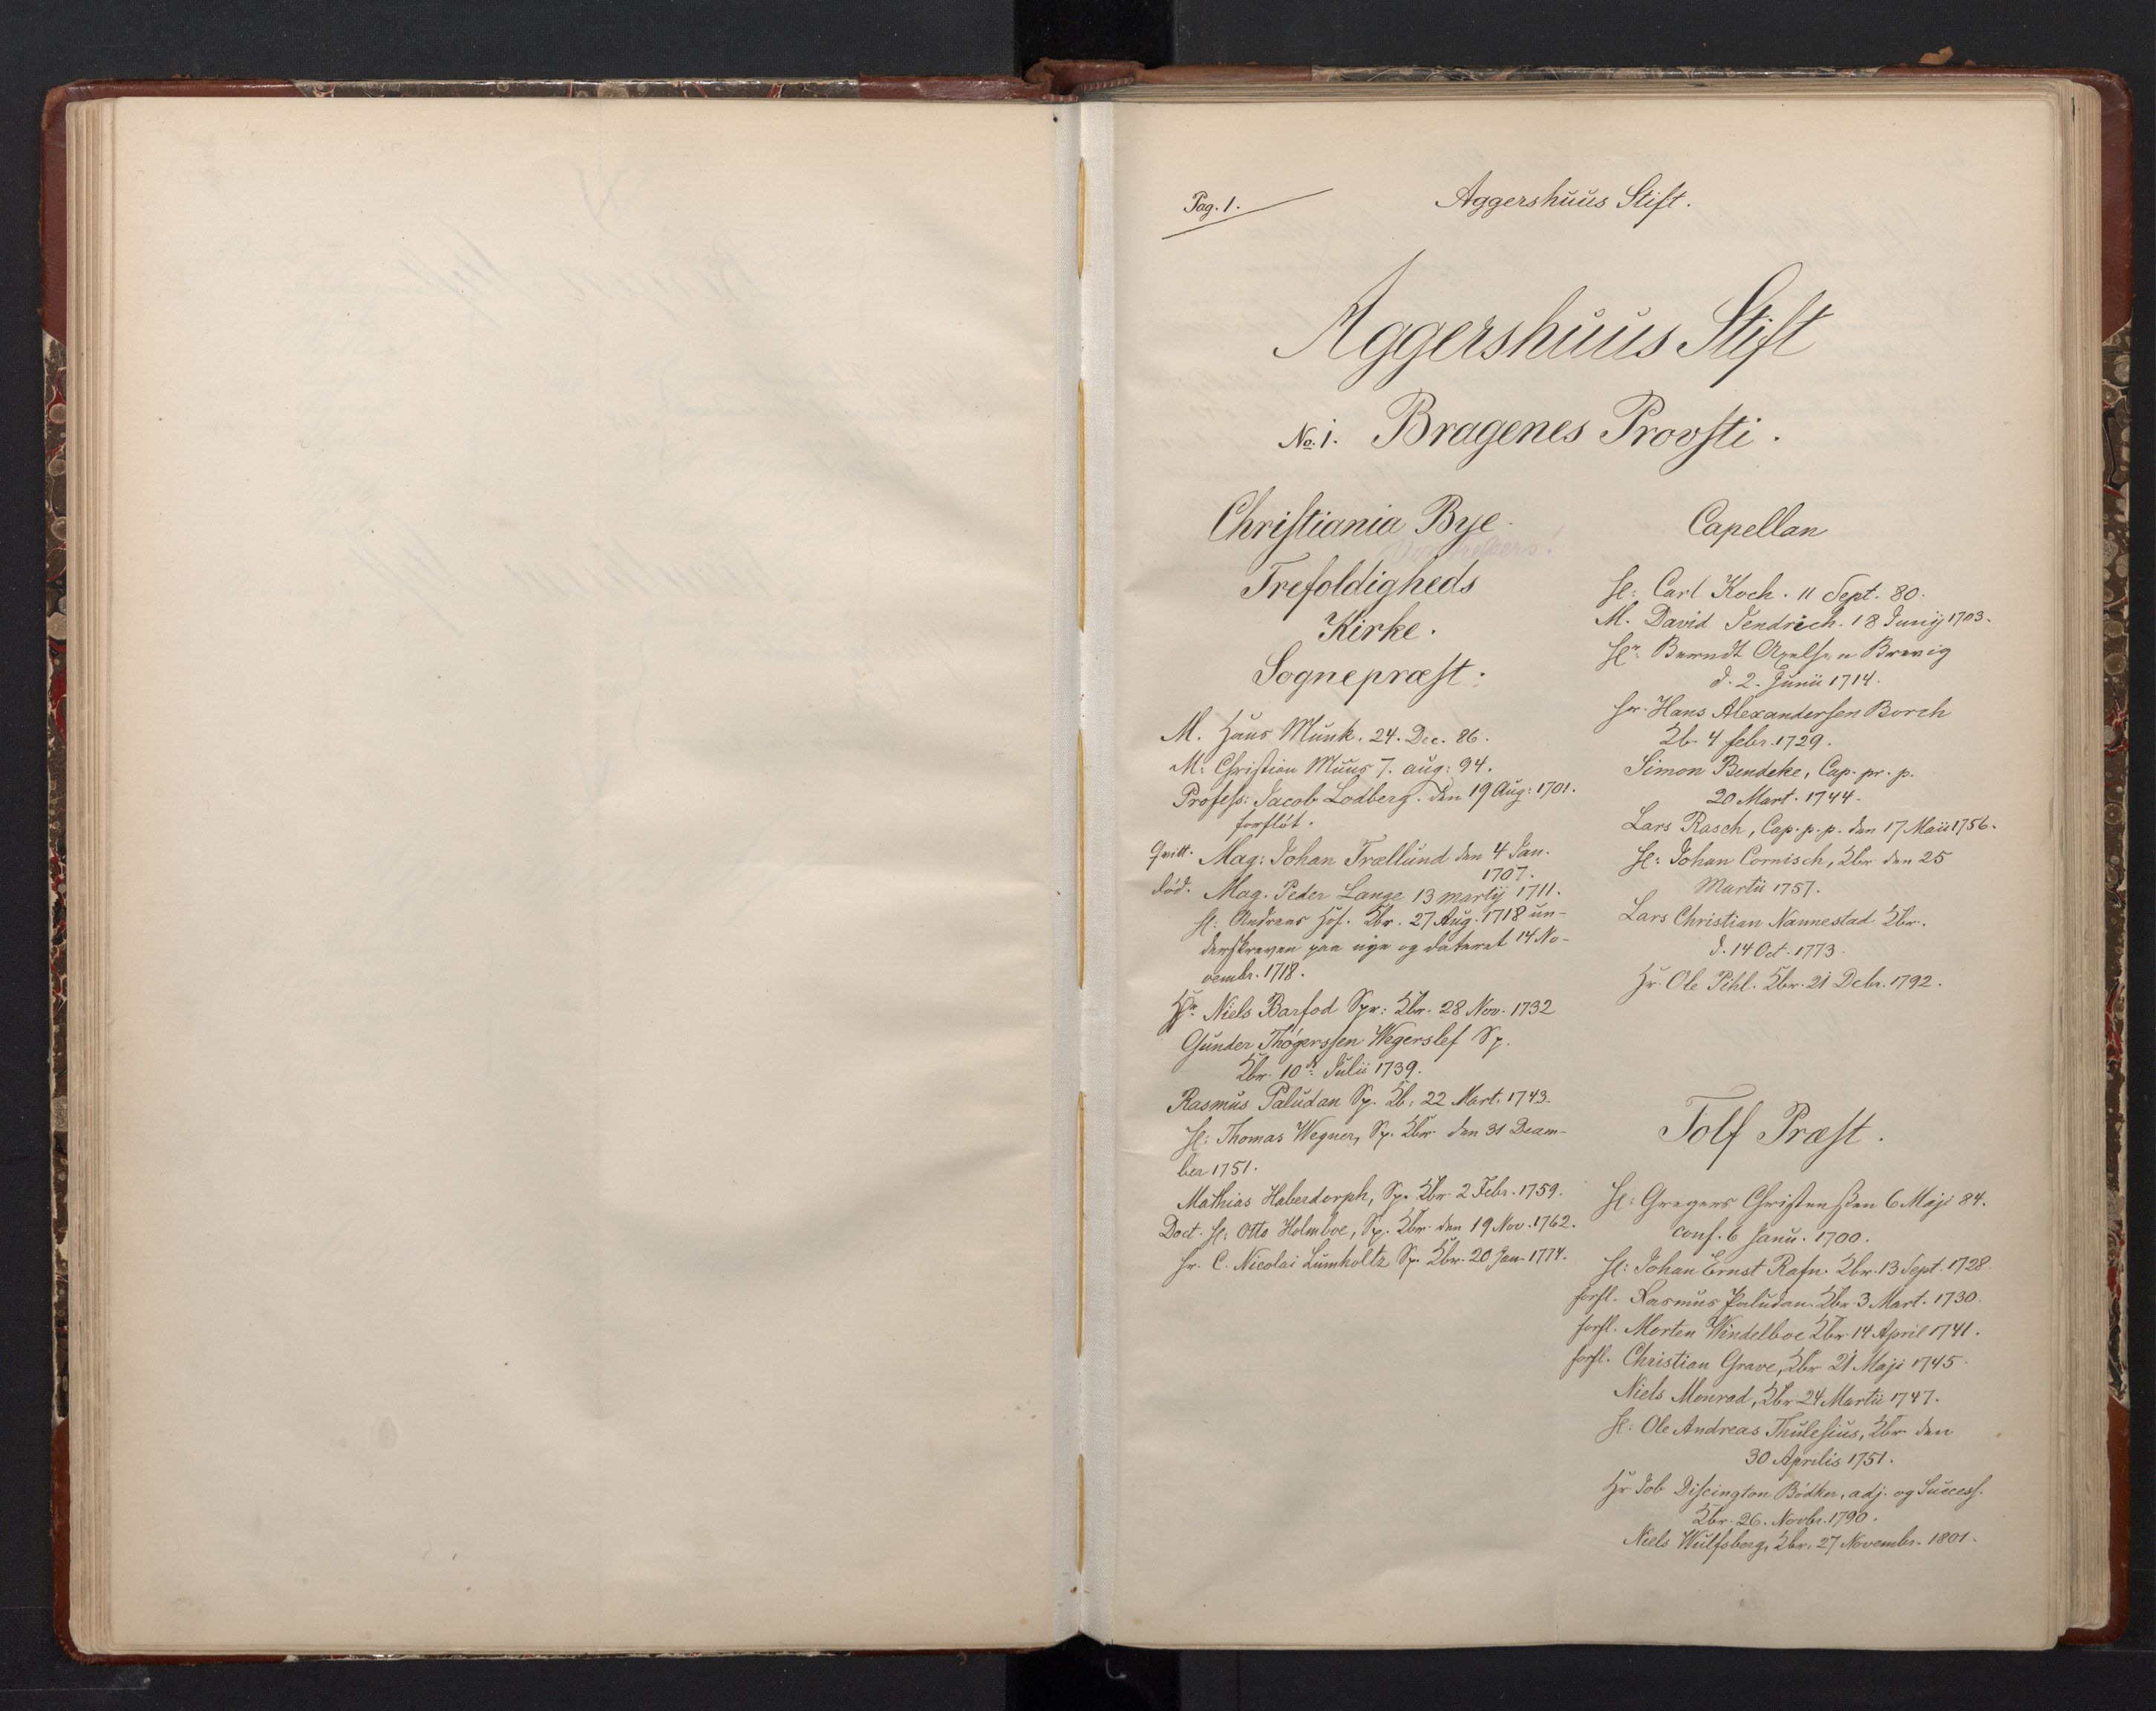 Pag. 1.
Aggershuus Stift.
Aggershuus Stift
No. 1. Bragenes Provsti.
Christiania Bye
Trefoldigheds
Kirke.
Sognepræst:
M. Hans Munk. 24. Dec. 86.
M: Christian Muus 7. aug: 94.
Profess: Jacob Lodberg. den 19 Aug: 1701.
forflöt.
Qvitt. Mag: Johan Trællund den 4 Jan.
1707.
död. Mag. Peder Lange 13 martij 1711.
H: Andreas Hof. Kbr. 27 Aug. 1718 un-
derskreven paa nye og dateret 14 No-
vembr. 1718.
Hr. Niels Barfod Spr: Kbr. 28 Nov. 1732
Gunder Thögerssen Wegerslef Sp.
Kbr. 10de Julii 1739.
Rasmus Paludan Sp. Kb: 22 Mart. 1743.
H: Thomas Wegner, Sp. Kbr. den 31 Decem-
ber 1751.
Mathias Haberdorph, Sp. Kbr. 2 Febr. 1759.
Doct. H: Otto Holmboe, Sp. Kbr. den 19 Nov. 1762.
Hr. C. Nicolai Lumholtz Sp. Kbr. 20 Jan. 1774.
Capellan
H: Carl Koch. 11 Sept. 80.
M. David Jendrich. 18 Junij 1703.
Hr. Berndt Axelsen Brevig
d. 2. Junii 1714.
Hr. Hans Alexandersen Borch
Kb. 4 febr. 1729.
Simon Bendeke, Cap. pr. p.
20 Mart. 1744.
Lars Rasch, Cap. p. p. den 17 Maii 1756.
H: Johan Cornisch, Kbr den 25
Martii 1757.
Lars Christian Nannestad Kbr.
d. 14 Oct. 1773.
Hr. Ole Pihl. Kbr. 21 Debr. 1792.
Tolf Præst.
H: Gregers Christenssen 6 Maji 84.
conf. 6 Janu. 1700.
H: Johan Ernst Rafn. Kbr. 13 Sept. 1728.
forfl. Rasmus Paludan. Kbr 3 Mart. 1730.
forfl. Morten Windelboe Kbr 14 April 1741.
forfl. Christian Grave, Kbr 21 Maji 1745.
Niels Monrad, Kbr 24 Martii 1747.
H: Ole Andreas Thulesius, Kbr den
30 Aprilis 1751.
Hr Job Discington Bödker, adj. og Success.
Kbr. 26. Novbr. 1790.
Niels Wulfsberg, Kbr. 27 Novembr. 1801.